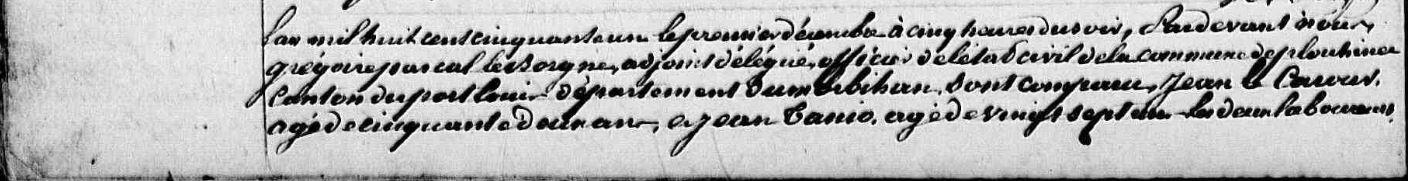 L'an mil huit cent cinquante un le premier décembre à cinq heures du soir, Pardevant nous
gregoire pascal Le Borgne, adjoint délégué, officier de l'état civil de la commune de plouhinec
Canton du port louis département du morbihan, sont comparus, Jean le
agé de cinquante deux ans, et jean Tanio, agé de vingt sept ans les deux laboureurs,